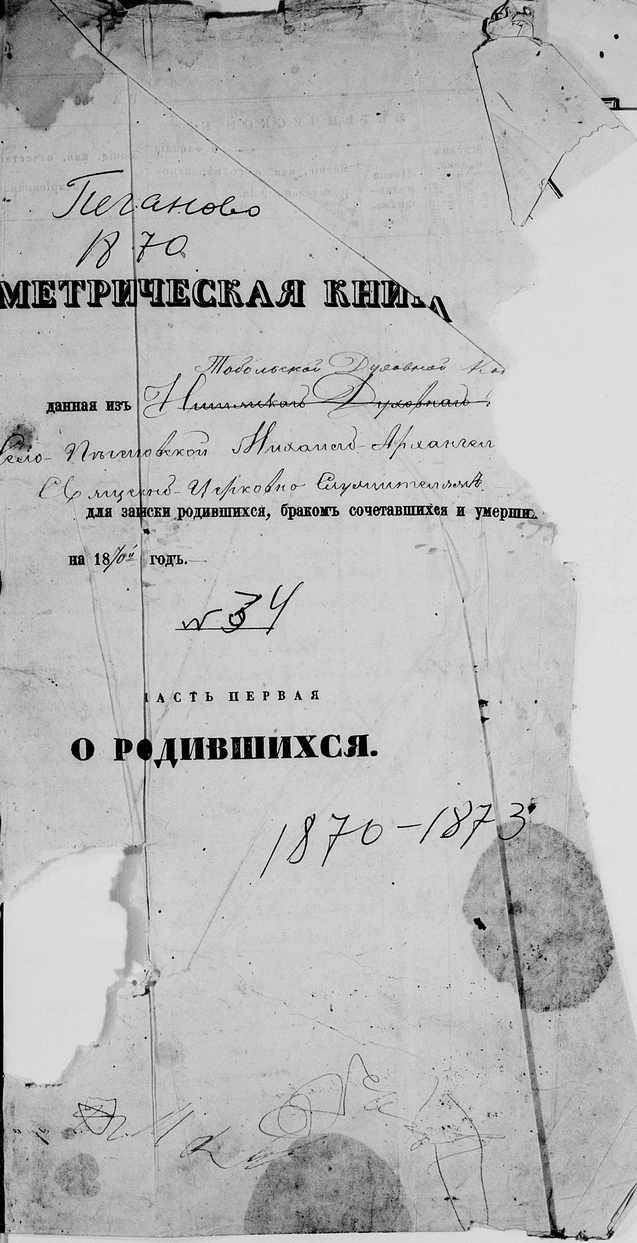 Пеганово
1870
МЕТРИЧЕСКАЯ КНИГА
Тобольской Духовной Кон
данная изъ Ишимскаго Духовнаго
Михаило-Архангел
Священно-Церковно Служителямъ
для записки родившихся, бракомъ сочетавшихся и умерших
на 1870й годъ.
N 34
ЧАСТЬ ПЕРВАЯ
О РОДИВШИХСЯ.
1870-1873